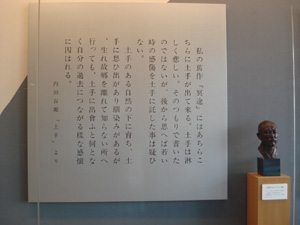 私の旧作「冥途」にはあちらこ
ちらに土手が出て来る。土手は淋
しく悲しい。そのつもりで書いた
のではないが、後から思へば若い
時の感傷を土手に託した事は疑ひ
ない。
土手のある自然の下に育ち、土
手に思ひ出があり馴染みがあるが
、生れ故郷を離れて知らない所へ
行っても、土手に出會ふと何とな
く自分の過去につながる様な感懐
に囚はれる。
内田百閒「土手」より